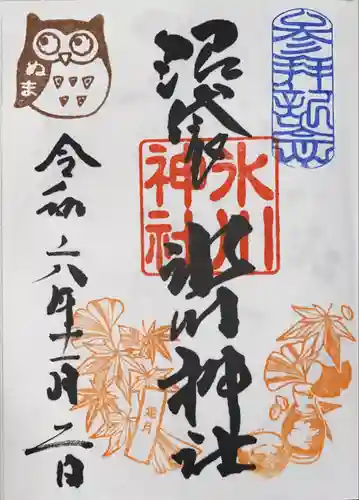 参拝記念
沼袋
氷川神社
氷川
神社
ぬま
令和六年十一月二日
霜月